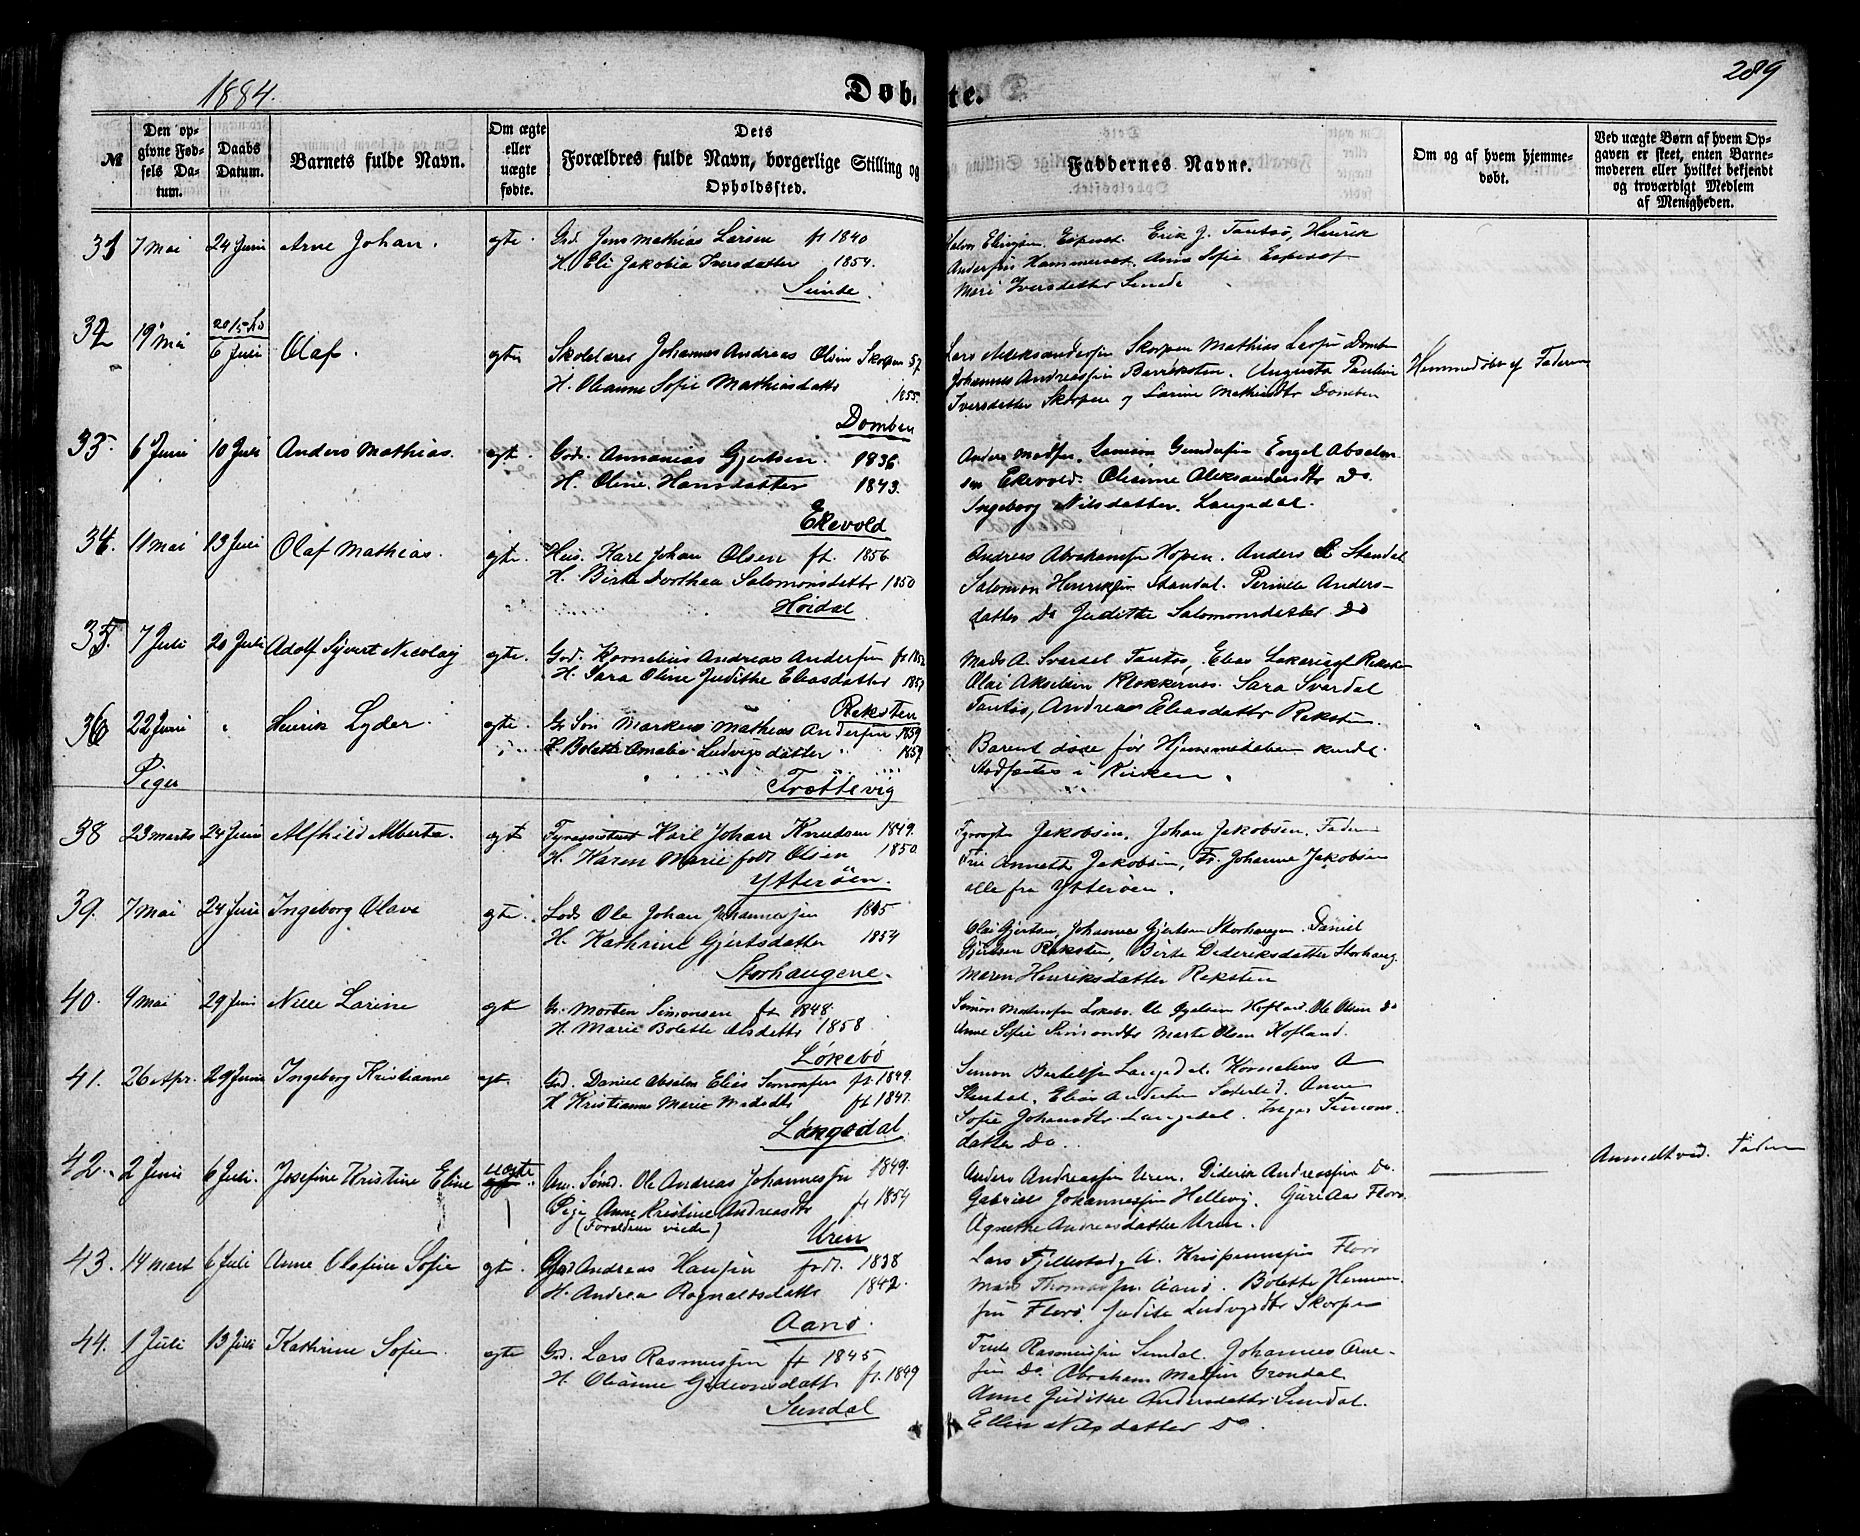 1884.
Døbte.
289
№
Den opgivne Fødsels Datum.
Daabs Datum.
Barnets fulde Navn.
Om ægte eller uægte fødte.
Dets Forældres fulde Navn, borgerlige Stilling og Opholdssted.
Faddernes Navne.
Om og af hvem hjemmedøbt.
Ved uægte Børn af hvem Opgaven er skeet, enten Barnemoderen eller hvilket bekjendt og troværdigt Medlem af Menigheden.
31 7 Mai 24 Juni Arne Johan. egte. Grd. Jens Mathias Larsen ft 1840
H. Eli Jakobia Iversdatter 1854.
Sunde.
Elingsen Espeset. Erik J. Tansø, Henrik
Andersen Hammerset. Anne Sofie Espeset
Mari Iversdatter Sunde
32 19 Mai 20/5 6 Juli Olaf. egte Skolelærer Johannes Andreas Olsen Skorpen 57
H. Oleanne Sofie Mathiasdatter 1855.
Domben
Lars Aleksandersen Skorpen Mathias Domben
Johannes Andreassen Barrekster. Augusta Pauline
Iversdatter Skorpen og Larine Mathiasdtr Domben
Hjemmedøbt af Faderen
33. 6 Juni 10 Juli Anders Mathias. egte. Grd. Annanias Gjertsen. 1836.
H. Oline Hansdatter 1843.
Ekevold
Anders Gundersen Engel Absalon
sen Ekevold. Olianne Aleksandersdtr Do
Ingeborg Nilsdatter. Langedal.
34. 11 Mai 13 Juli Olaf Mathias. egte. Hus. Karl Johan Olsen ft. 1856
H. Birte Dorthea Salomonsdatter 1850
Høidal
Andreas Abrahamsen Hopen. Anders Standal
Salomon Henriksen Standal. Pernille Anders-
datter Do Judithe Salomonsdatter Do
35. 7 Juli 20 Juli Adolf Syvert Nicolay egte. Grd. Kornelius Andreas Andersen ft 1852
H. Sara Oline Judithe Eliasdatter 1857
Reksten
Mads A. Svardal Tansø, Elias Reksten
Olai Akselsen Klokkernes. Sara Svardal
Tansø, Andrea Eliasdatter Reksten.
36 22 Juni " Henrik Lyder. egte. Gr. Søn Markus Mathias Andersen 1859
H. Bolette Amalia Ludvigsdatter 1859
Trættevig
Barnet døde før Hjemmedaaben kunde
Stadfæstes i Kirken.
Piger
38 23 Marts 24 Juni Alfhild Alberta. egte Fyrassistent Karl Johan Knudsen 1849.
H. Karen Marie født Olsen 1850.
Ytterøen.
Fyrvogter Jakobsen, Johan Jakobsen, Faderen
Frue Annette Jakobsen, Fr. Johanne Jakobsen
alle fra Ytterøen.
39. 7 Mai 24 Juni Ingeborg Olava egte. Lods Ole Johan Johannessen
H. Kathrine Gjertsdatter 1854
Storhaugene.
Olai Gjertsen, Johannes Gjertsen Storhaugen. Daniel
Gjertsen Reksten, Birte Dideriksdatter Storhaug.
Maren Henriksdatter Reksten
40. 4 Mai 29 Juni Nille Larine egte Gr. Morten Simonsen ft. 1848.
H. Marie Bolette Olsdatter 1858.
Løkebø
Simon Løkebø. Ole Hofland Ole Olsen Do
Anne Sofie Simonsdtr Marte Olsen Hofland.
41. 26 Apr. 29 Juni Ingeborg Kristianne egt. Grd. Daniel Absalon Elias Simonsen ft. 1849.
H Kristianne Marie ft. 1847.
Langedal
Simon Bertelsen Langedal. Kornelius A
Standal. Elias Andersen Anne
Sofie Langedal. Inger Simons-
datter Do.
42. 2 Juni 6 Juli. Josefine Kristine Eline uegte Ole Andreas Johannessen 1849.
Pige Anne Kristine Andreasdtr ft 1854
(Forældrene viede)
Uren
Anders Andreassen Uren. Diderik Andreassen Do.
Gabriel Johannessen Hellevig. Guri Aas Florø.
Agnethe Andreasdatter Uren.
Anmeldt ved. Faderen
43. 14 Mart 6 Juli Anne Olefine Sofie egte. Grd Andreas Hansen født. 1838
H. Andrea Rognaldsdatter 1842.
Aanø.
Lars Fjellestad, A. Florø
Mads Thomassen Aanø. Bolette Herman-
sen Florø. Judite Ludvigsdtr Skorpen
44. 1 Juli 13 Juli Kathrine Sofie egte Grd. Lars Rasmussen ft 1845
H. Olianne Gideonsdatter ft. 1849
Sundal
Truls Rasmussen Sundal. Johannes Arne-
sen Do. Abraham Madsen Grøndal
Anne Judithe Andersdatter Sundal.
Ellen Nilsdatter Do.